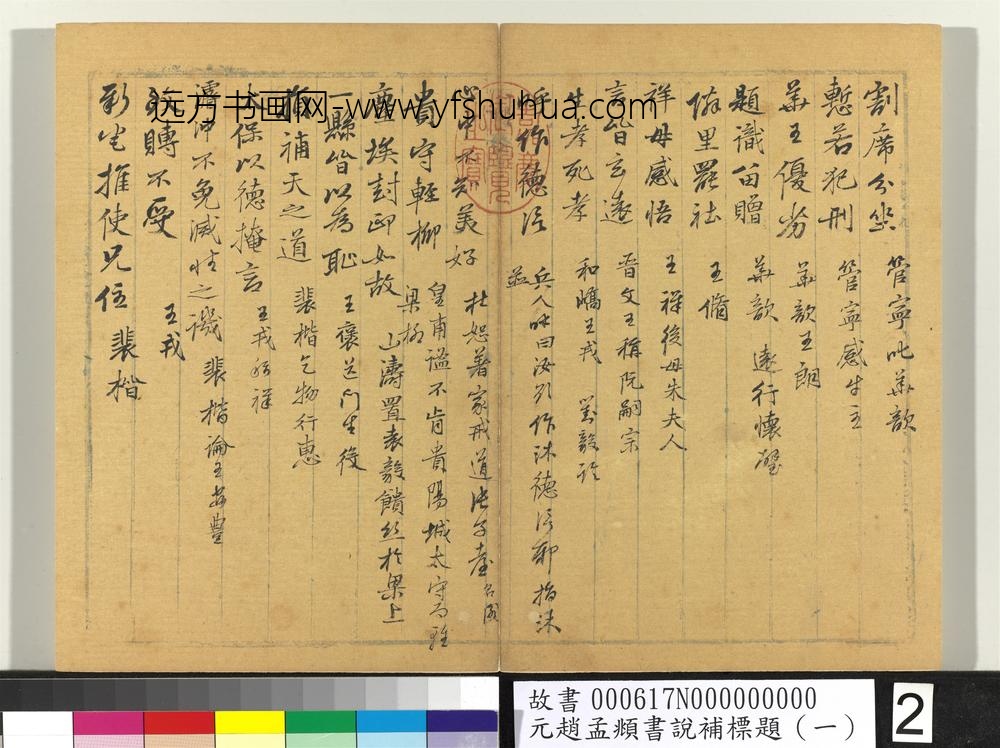 割席分坐 管寧 華歆
慙若犯刑 管寧感牛主
華王優劣 華歆王朗
題識留贈 華歆 遠行懷璧
鄰里罷社 王脩
祥母感悟 王祥後母朱夫人
言皆玄遠 晉文王稱阮嗣宗
生孝死孝 和嶠王戎 劉毅
作德信 兵人 曰汝欲作沐德信邪 指沐並
美好 杜恕著家戒道張子臺 名閣
貴守輕柳 皇甫謐不肯貴陽城太守而 梁柳
塵埃封印如故 山濤置袁毅饋絲於梁上
一縣皆以為恥 王褒送門生役
損補天之道 裴楷乞物行惠
太保以德掩言 王戎 祥
濬沖不免滅性之譏 裴楷論王安豐
致賻不受 王戎
推使兄伍 裴楷
远方书画网-www.yfshuhua.com
故書 000617N000000000
元趙孟頫書說補標題(一)
2